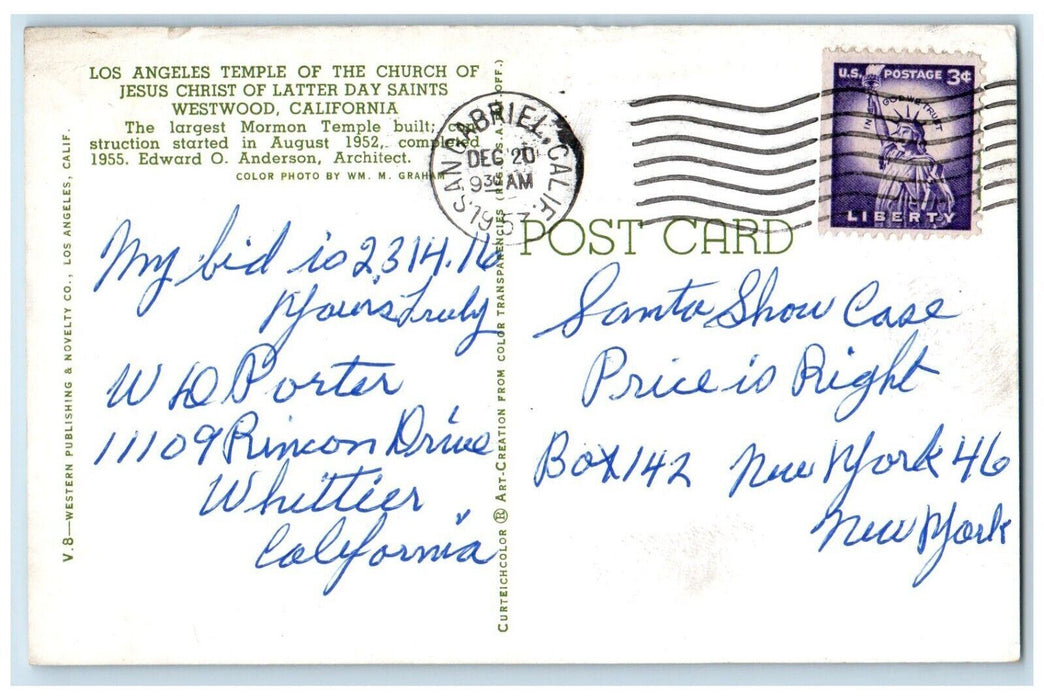 LOS ANGELES TEMPLE OF THE CHURCH OF
JESUS CHRIST OF LATTER DAY SAINTS
WESTWOOD, CALIFORNIA
The largest Mormon Temple built;
struction started in August 1952, completed
1955. Edward O. Anderson, Architect.
COLOR PHOTO BY WM. M. GRAHAM
My bid is 2314.16
Yours Truly
W D Porter
11109 Rincon Drive
Whittier
California
V.8—WESTERN PUBLISHING & NOVELTY CO., LOS ANGELES, CALIF.
CURTEICHCOLOR ® ART-CREATION FROM COLOR TRANSPARENCIES (REG. U.S.A. OFF.)
SAN GABRIEL, CALIF.
DEC 20
930 AM
1957
U.S. POSTAGE 3¢
IN GOD WE TRUST
LIBERTY
POST CARD
Santa Show Case
Price is Right
Box 142 New York 46
New York